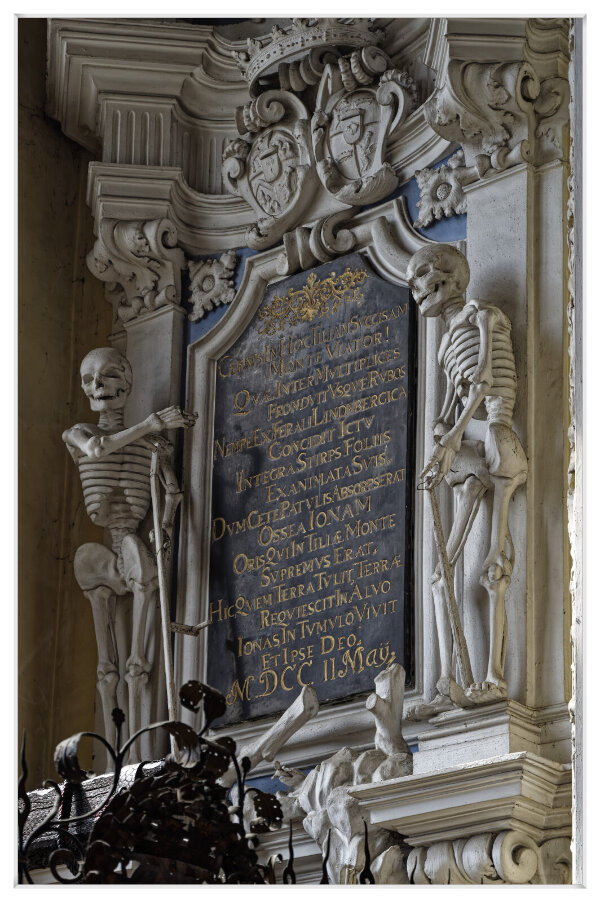 CERNIS IN HOC TILIAM SVCCISAM
MONTE VIATOR!
QVÆ INTER MVLTIPLICES
FRONDVIT VSQVE RVBOS
NEMPE EX FERALI LINDNBERGICA
CONCIDIT ICTV
INTEGRA STIRPS FOLIIS
EXANIMATA SVIS.
DVM CETE PATVLIS ABSORPSERAT
OSSEA IONAM
ORIS QVI IN TILIÆ MONTE
SVPREMVS ERAT,
HIC QVEM TERRA TVLIT, TERRÆ
REQVIESCIT IN ALVO
IONAS IN TVMVLO VIVIT
ET IPSE DEO:
M.DCC II Maÿ: